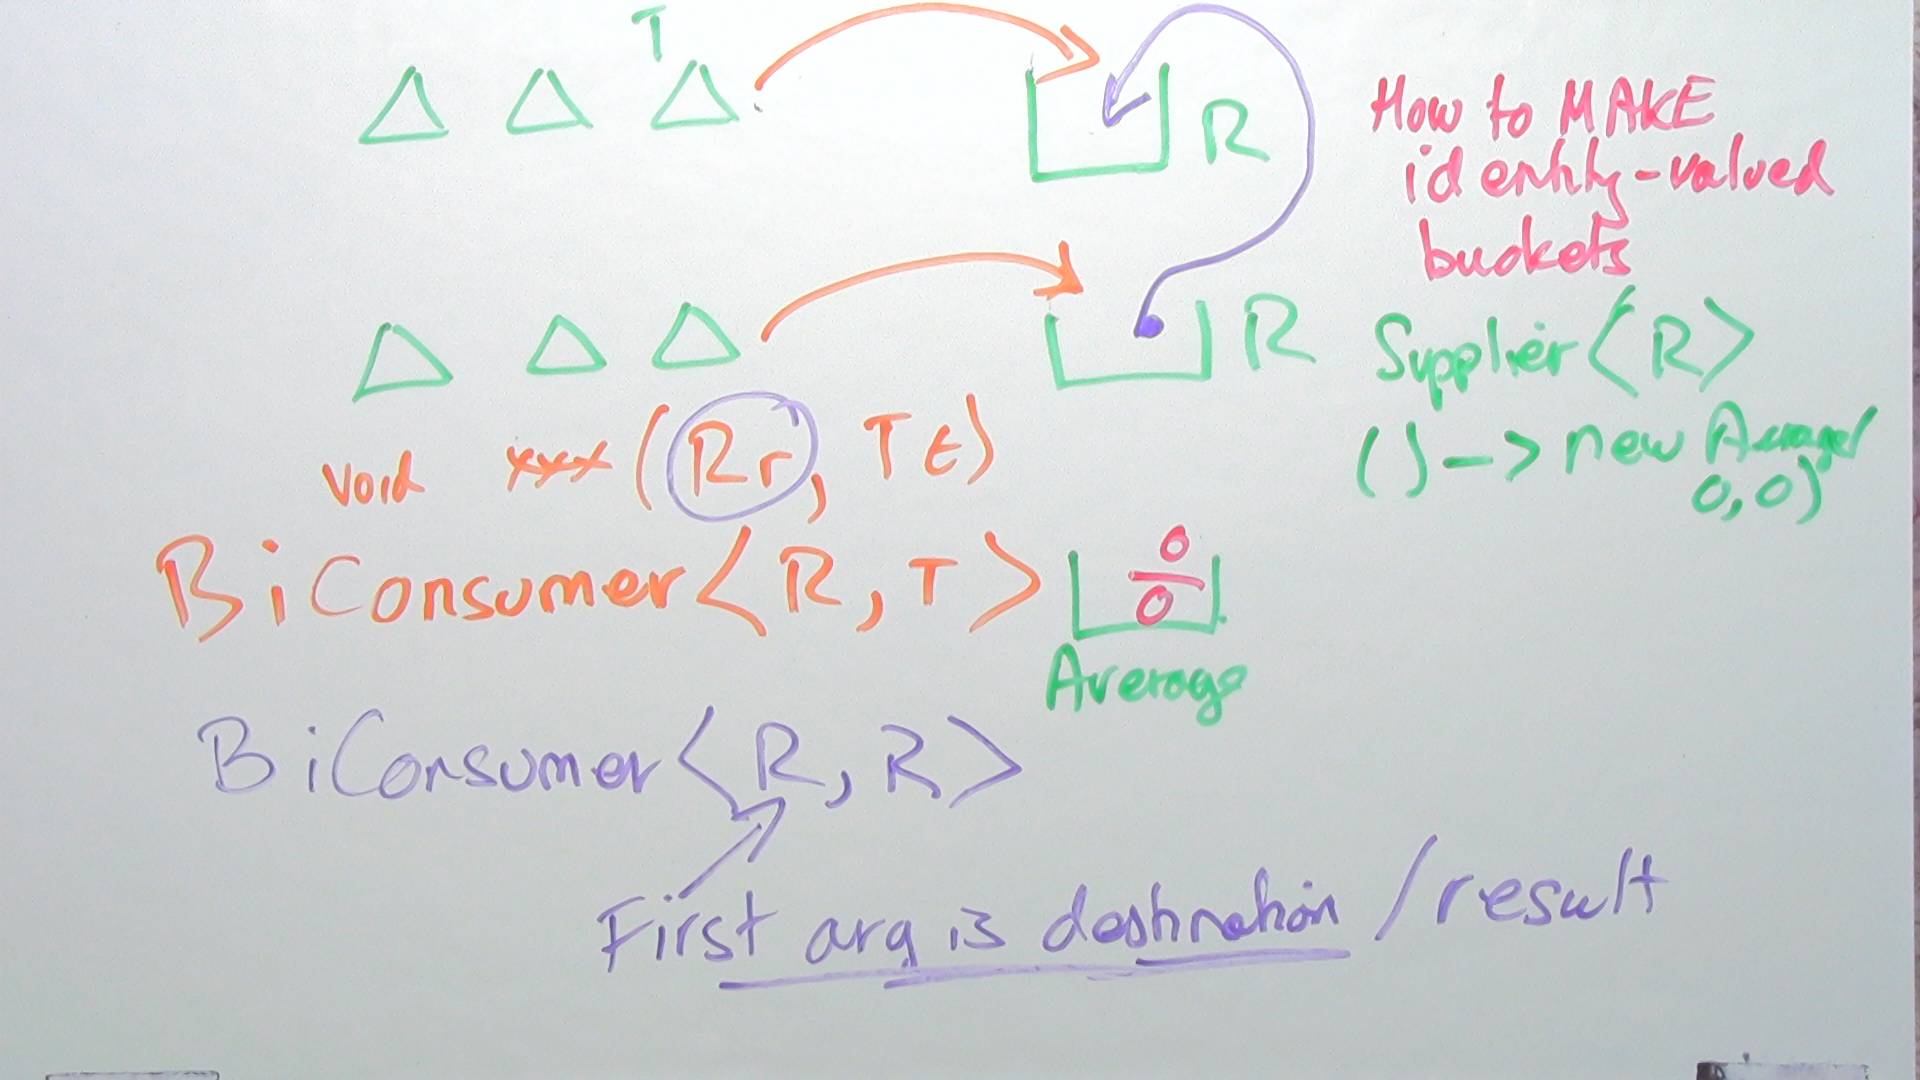 T
R
How to MAKE
identity-valued
buckets
R
Supplier<R>
() -> new Average(
0,0)
void xxx (R r, T t)
BiConsumer<R,T>
0
0
Average
BiConsumer<R,R>
First arg is destination / result